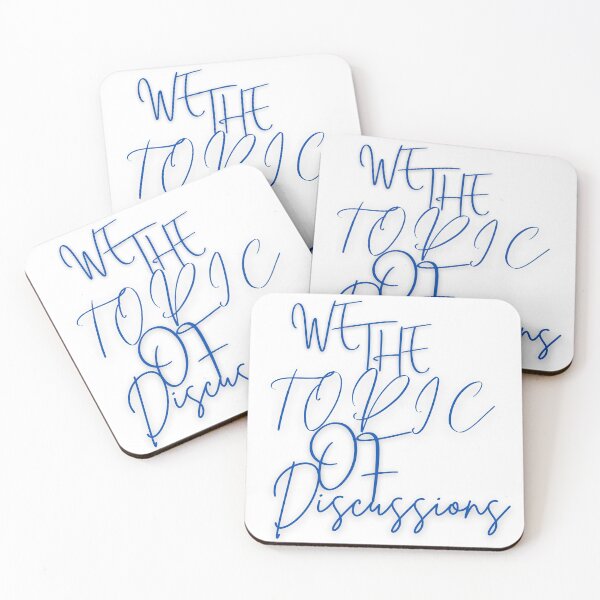 WE THE
TOPIC
WE THE
TOPIC
OF
WE THE
TOPIC
OF
Discus
WE THE
TOPIC
OF
Discussions